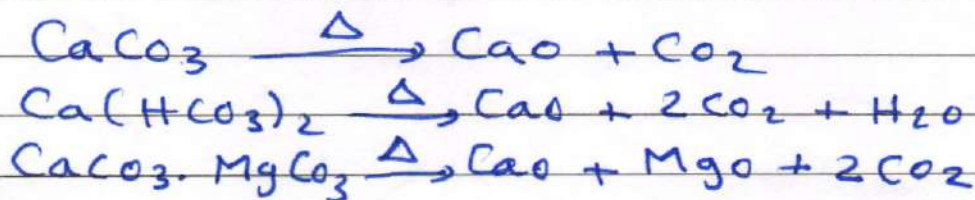 CaCO₃ —Δ→ CaO + CO₂
Ca(HCO₃)₂ —Δ→ CaO + 2CO₂ + H₂O
CaCO₃. MgCO₃ —Δ→ CaO + MgO + 2CO₂